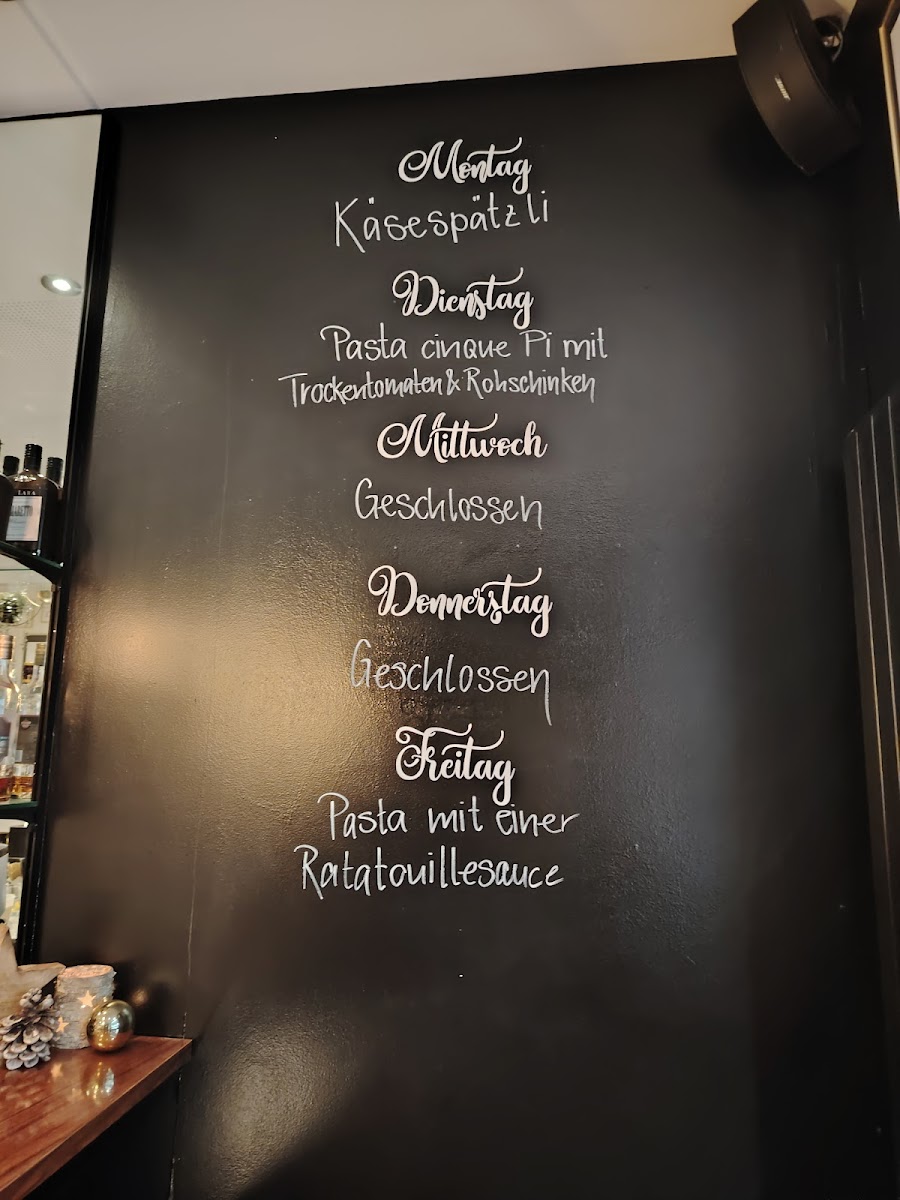 Montag
Käsespätzli
Dienstag
Pasta cinque Pi mit
Trockentomaten & Rohschinken
Mittwoch
Geschlossen
Donnerstag
Geschlossen
Freitag
Pasta mit einer
Ratatouillesauce